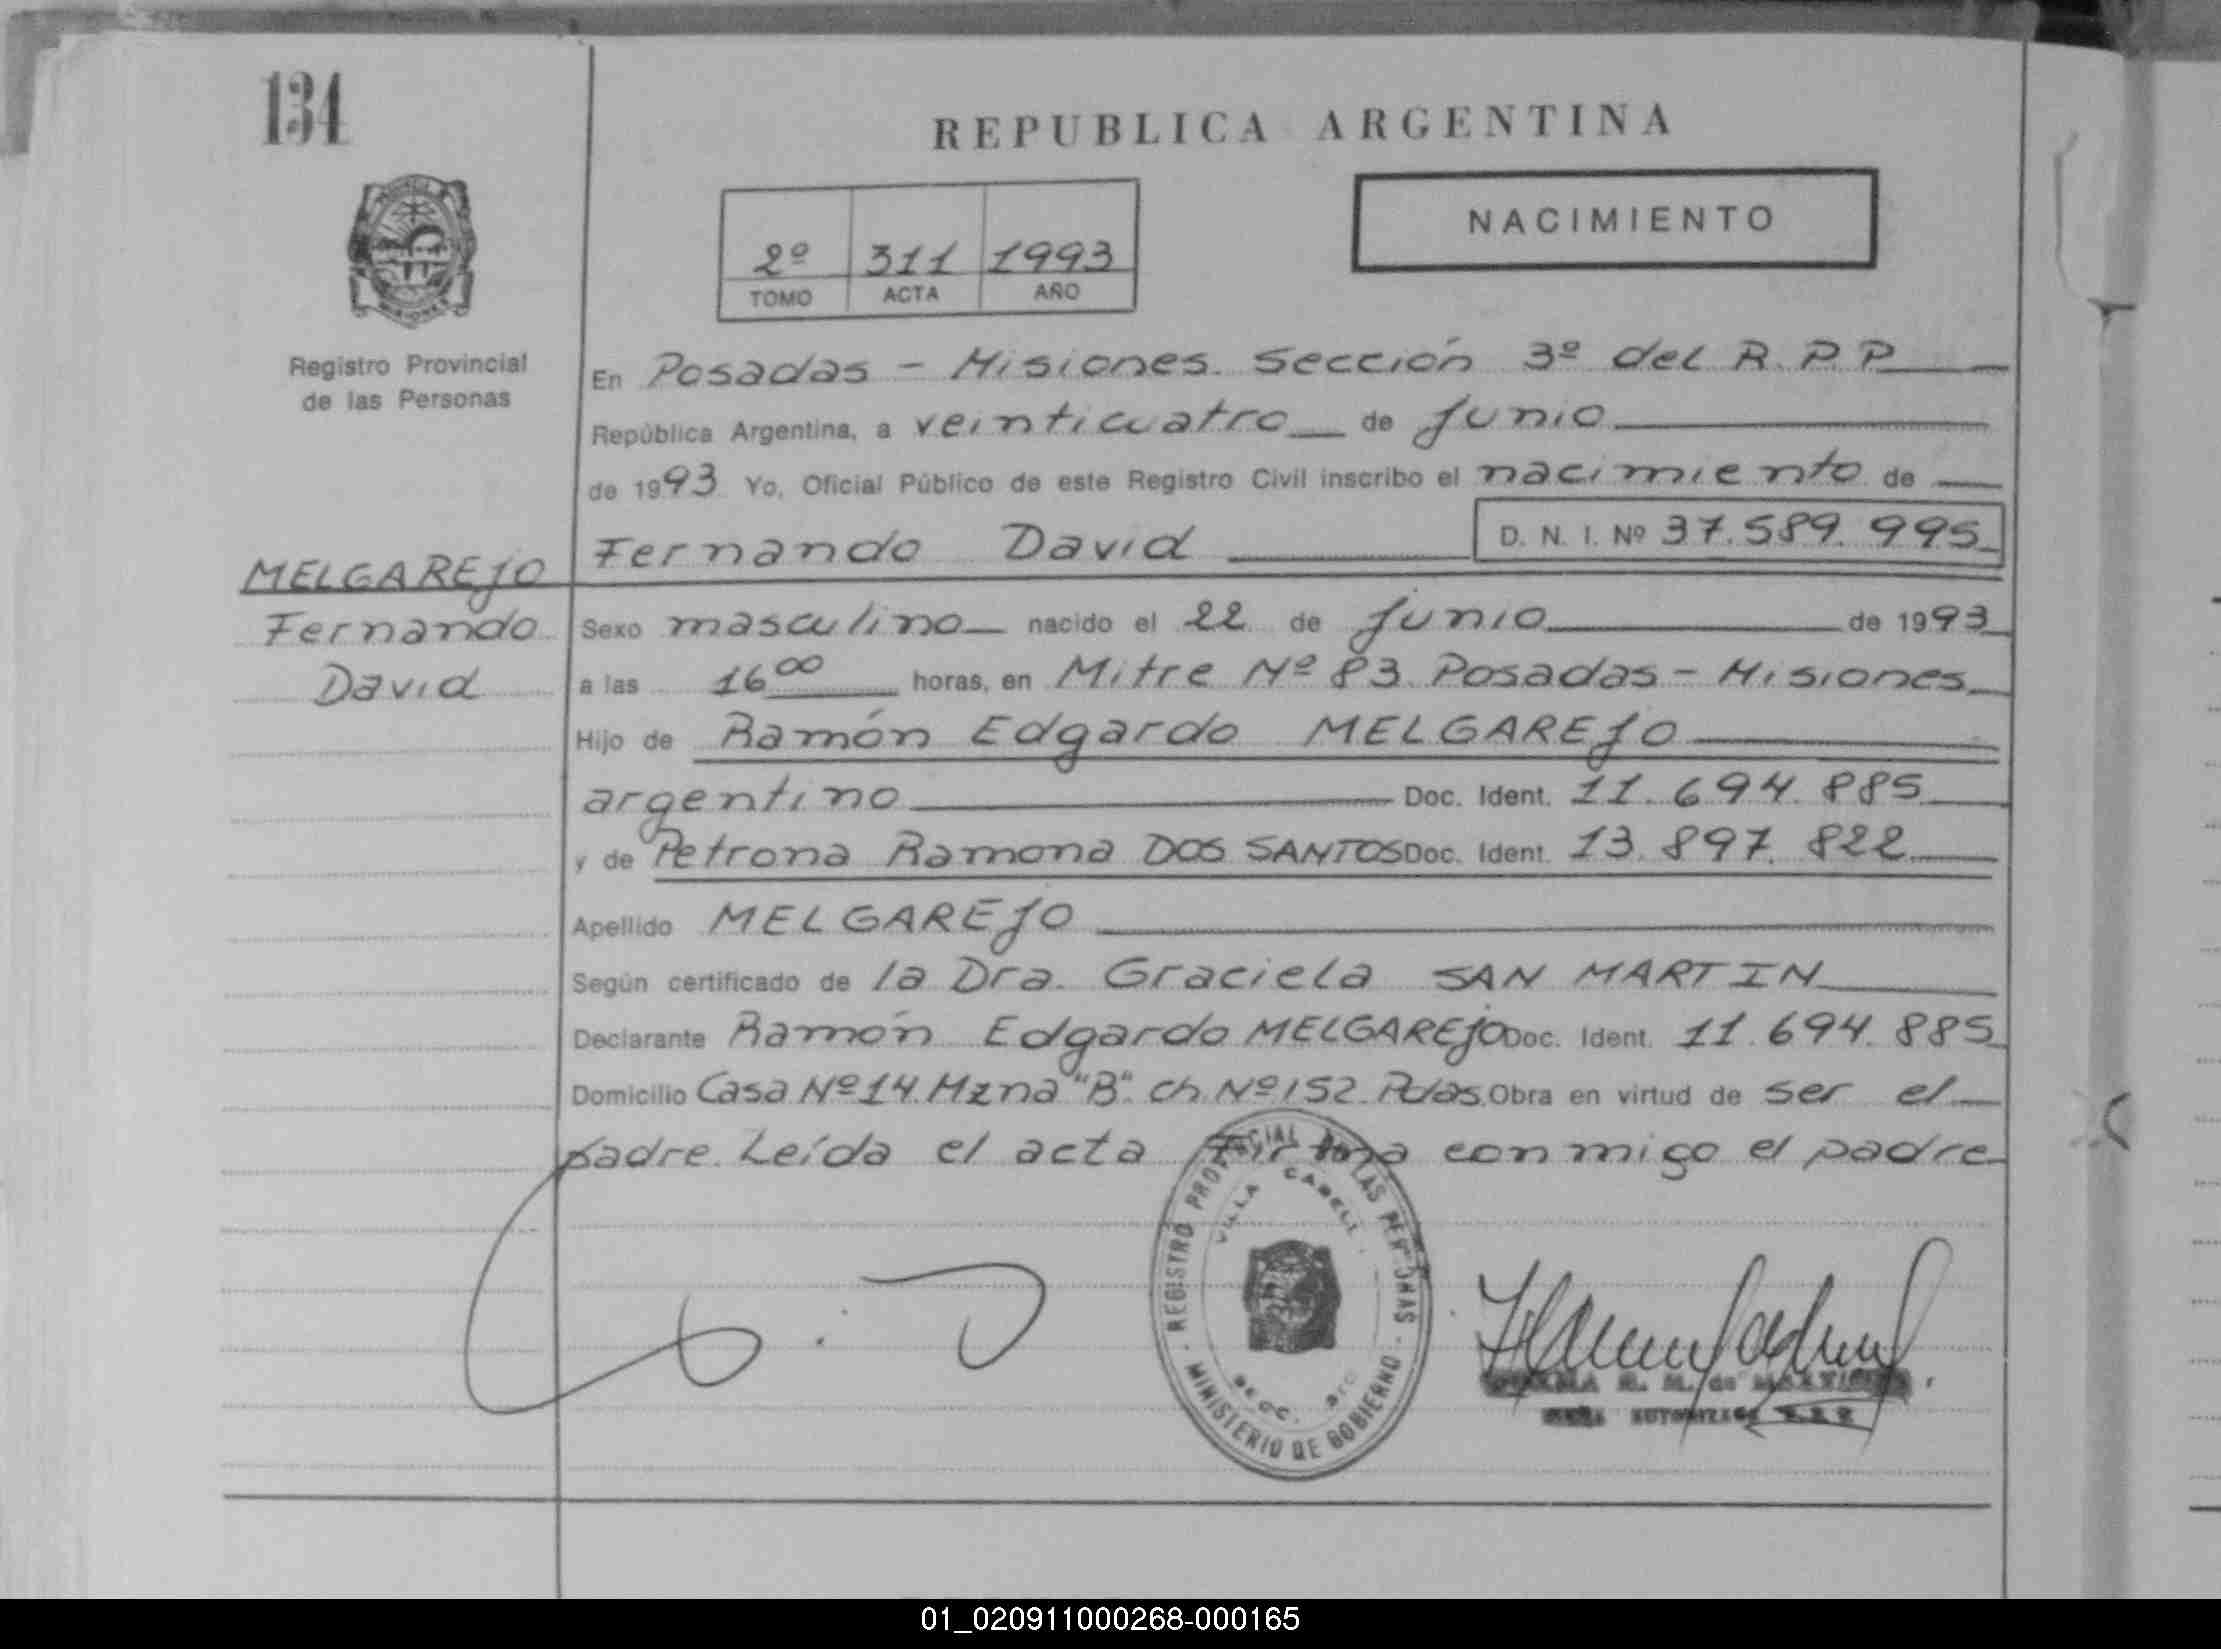 134
REPUBLICA ARGENTINA
NACIMIENTO
2º 311 1993
TOMO ACTA AÑO
Registro Provincial
de las Personas
En Posadas - Misiones. Sección 3º del R.P.P
República Argentina, a veinticuatro de Junio
de 1993 Yo, Oficial Público de este Registro Civil inscribo el nacimiento de
Fernando David D. N. I. Nº 37.589.995
MELGAREJO
Fernando
David
Sexo masculino nacido el 22 de Junio de 1993
a las 16 00 horas, en Mitre Nº 83 Posadas - Misiones
Hijo de Ramón Edgardo MELGAREJO
argentino Doc. Ident. 11.694.885
y de Petrona Ramona DOS SANTOS Doc. Ident. 13.897.822
Apellido MELGAREJO
Según certificado de la Dra. Graciela SAN MARTIN
Declarante Ramón Edgardo MELGAREJO Doc. Ident. 11.694.885
Domicilio Casa Nº 14 Mzna "B". ch. Nº 152. Pdas. Obra en virtud de ser el
padre. Leída el acta firma conmigo el padre
REGISTRO PROVINCIAL DE LAS PERSONAS
MINISTERIO DE GOBIERNO
VILLA CABELL
SECC. 3ra
01_020911000268-000165